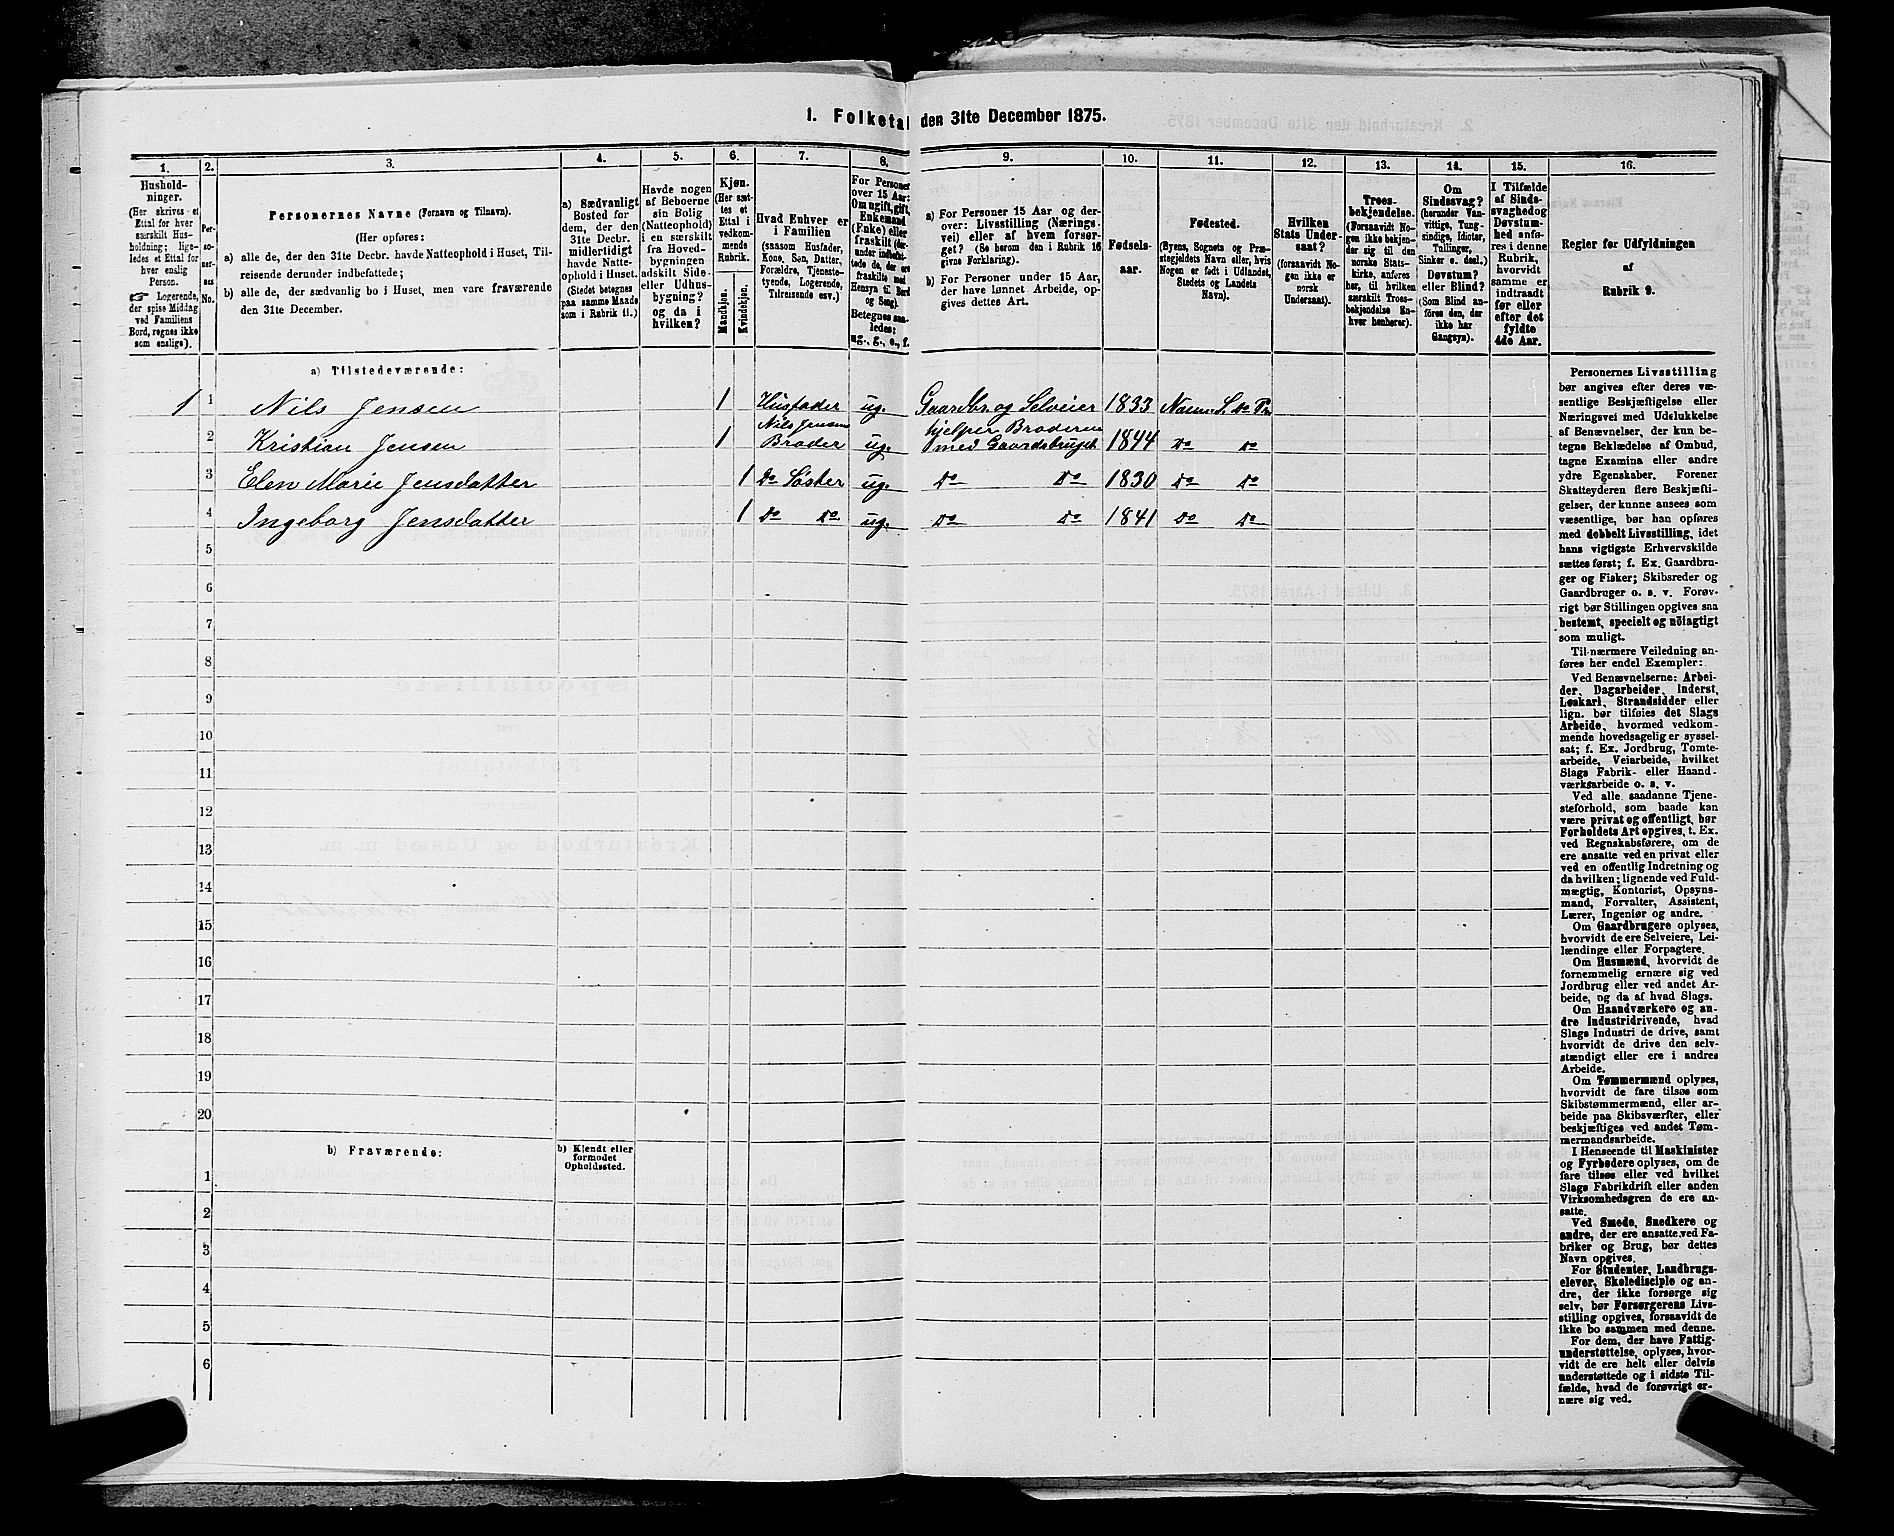 1. Folketal den 31te December 1875.
1. 2. 3. 4. 5. 6. 7. 8. 9. 10. 11. 12. 13. 14. 15. 16.
Hushold-
ninger.
(Her skrives et
Ettal for hver
særskilt Hus-
holdning; lige-
ledes et Ettal for
hver enslig
Person.
☞ Logerende,
der spise Middag
ved Familiens
Bord, regnes ikke
som enslige).
Per-
so-
ner-
nes
No.
Personernes Navne (Fornavn og Tilnavn).
(Her opføres:
a) alle de, der den 31te Decbr. havde Natteophold i Huset, Til-
reisende derunder indbefattede;
b) alle de, der sædvanlig bo i Huset, men vare fraværende
den 31te December.
a) Sædvanligt
Bosted for
dem, der den
31te Decbr.
midlertidigt
havde Natte-
ophold i Huset.
(Stedet betegnes
paa samme Maade
som i Rubrik 11.)
Havde nogen
af Beboerne
sin Bolig
(Natteophold)
i en særskilt
fra Hoved-
bygningen
adskilt Side-
eller Udhus-
bygning?
og da i
hvilken?
Kjøn.
(Her sæt-
tes et
Ettal i
vedkom-
mende
Rubrik.
Mandkjøn.
Kvindekjøn.
Hvad Enhver er
i Familien
(saasom Husfader,
Kone, Søn, Datter,
Forældre, Tjeneste-
tyende, Logerende,
Tilreisende osv.)
For Personer
over 15 Aar:
Om ugift, gift,
Enkemand
(Enke) eller
fraskilt (der-
under indbefat-
tede de, der ere
fraskilte med
Hensyn til Bord
og Seng).
Betegnes saa-
ledes:
ug., g., e., f.
a) For Personer 15 Aar og der-
over: Livsstilling (Nærings-
vei) eller af hvem forsør-
get? (Se herom den i Rubrik 16
givne Forklaring).
b) For Personer under 15 Aar,
der have lønnet Arbeide, op-
gives dettes Art.
Fødsels-
aar.
Fødested.
(Byens, Sognets og Præ-
stegjeldets Navn eller, hvis
Nogen er født i Udlandet,
Stedets og Landets
Navn).
Hvilken
Stats Under-
saat?
(forsaavidt No-
gen ikke er
norsk
Undersaat).
Troes-
bekjendelse.
(Forsaavidt No-
gen ikke bekjen-
der sig til den
norske Stats-
kirke, anføres
her, til hvilken
særskilt Troes-
bekjendelse En-
hver henhører).
Om
Sindssvag?
(herunder Van-
vittige, Tung-
sindige, Idioter,
Tullinger,
Sinker o. desl.)
Døvstum?
eller Blind?
(Som Blind an-
føres den, der
ikke har
Gangsyn).
I Tilfælde
af Sinds-
svaghed og
Døvstum-
hed anfø-
res i denne
Rubrik,
hvorvidt
samme er
indtraadt
før eller
efter det
fyldte
4de Aar.
Regler for Udfyldningen
af
Rubrik 9.
a) Tilstedeværende:
1 1 Nils Jensen 1 Husfader ug. Gaardbr. og Selveier 1833
2 Kristian Jensen 1 Nils Jensens Broder ug. hjelper Broderen med Gaardsbruget 1844 Do Do
3 Elen Marie Jensdatter 1 Do Søster ug. Do Do 1830 Do Do
4 Ingeborg Jensdatter 1 Do Do ug. Do Do 1841 Do Do
5
6
7
8
9
10
11
12
13
14
15
16
17
18
19
20
b) Fraværende:
b) Kjendt eller
formodet
Opholdssted.
1
2
3
4
5
6
Personernes Livsstilling
bør angives efter deres væ-
sentlige Beskjæftigelse eller
Næringsvei med Udelukkelse
af Benævnelser, der kun be-
tegne Beklædelse af Ombud,
tagne Examina eller andre
ydre Egenskaber. Forener
Skatteyderen flere Beskjæfti-
gelser, der kunne ansees som
væsentlige, bør han opføres
med dobbelt Livsstilling, idet
hans vigtigste Erhvervskilde
sættes først; f. Ex. Gaardbru-
ger og Fisker; Skibsreder og
Gaardbruger o. s. v. Forøv-
rigt bør Stillingen opgives saa
bestemt, specielt og nøiagtigt
som muligt.
Til nærmere Veiledning an-
føres her endel Exempler:
Ved Benævnelserne: Arbei-
der, Dagarbeider, Inderst,
Løskarl, Strandsidder eller
lign. bør tilføies det Slags
Arbeide, hvormed vedkom-
mende hovedsagelig er syssel-
sat; f. Ex. Jordbrug, Tomte-
arbeide, Veiarbeide, hvilket
Slags Fabrik- eller Haand-
værksarbeide o. s. v.
Ved alle saadanne Tjene-
steforhold, som baade kan
være privat og offentligt, bør
Forholdets Art opgives, t. Ex.
ved Regnskabsførere, om de
ere ansatte ved en privat eller
ved en offentlig Indretning og
da hvilken; lignende ved Fuld-
mægtig, Kontorist, Opsyns-
mand, Forvalter, Assistent,
Lærer, Ingeniør og andre.
Om Gaardbrugere oplyses,
hvorvidt de ere Selveiere, Lei-
lændinge eller Forpagtere.
Om Husmænd, hvorvidt de
fornemmelig ernære sig ved
Jordbrug eller ved andet Ar-
beide, og da af hvad Slags.
Om Haandværkere og an-
dre Industridrivende, hvad
Slags Industri de drive, samt
hvorvidt de drive den selv-
stændigt eller ere i andres
Arbeide.
Om Tømmermænd oplyses,
hvorvidt de fare tilsøs som
Skibstømmermænd, eller ar-
beide paa Skibsværfter, eller
beskjæftiges ved andet Tøm-
mermandsarbeide.
I Henseende til Maskinister
og Fyrbødere oplyses, om de
fare tilsøs eller ved hvilket
Slags Fabrikdrift eller anden
Virksomhedsgren de ere an-
satte.
Ved Smede, Snedkere og
andre, der ere ansatte ved Fa-
briker og Brug, bør dettes
Navn opgives.
For Studenter, Landbrugs-
elever, Skoledisciple og an-
dre, der ikke forsørge sig
selv, bør Forsørgerens Livs-
stilling opgives, forsaavidt de
ikke bo sammen med denne.
For dem, der have Fattig-
understøttelse, oplyses, hvor-
vidt de ere helt eller delvis
understøttede og i sidste Til-
fælde, hvad de forøvrigt er-
nære sig ved.